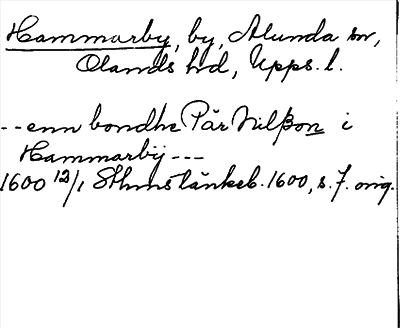 Hammarby, by, Alunda sn,
Olands hd, Upps. l.
-- enn bondhe Pär Nilßon i
Hammarbij ---
1600 12/1 Sthms tänkeb. 1600, s. 7. orig.